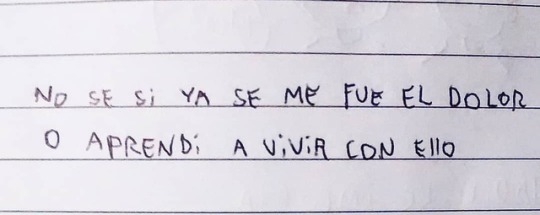 NO SE Si YA SE ME FUE EL DOLOR
O APRENDi A ViViR CON Ello